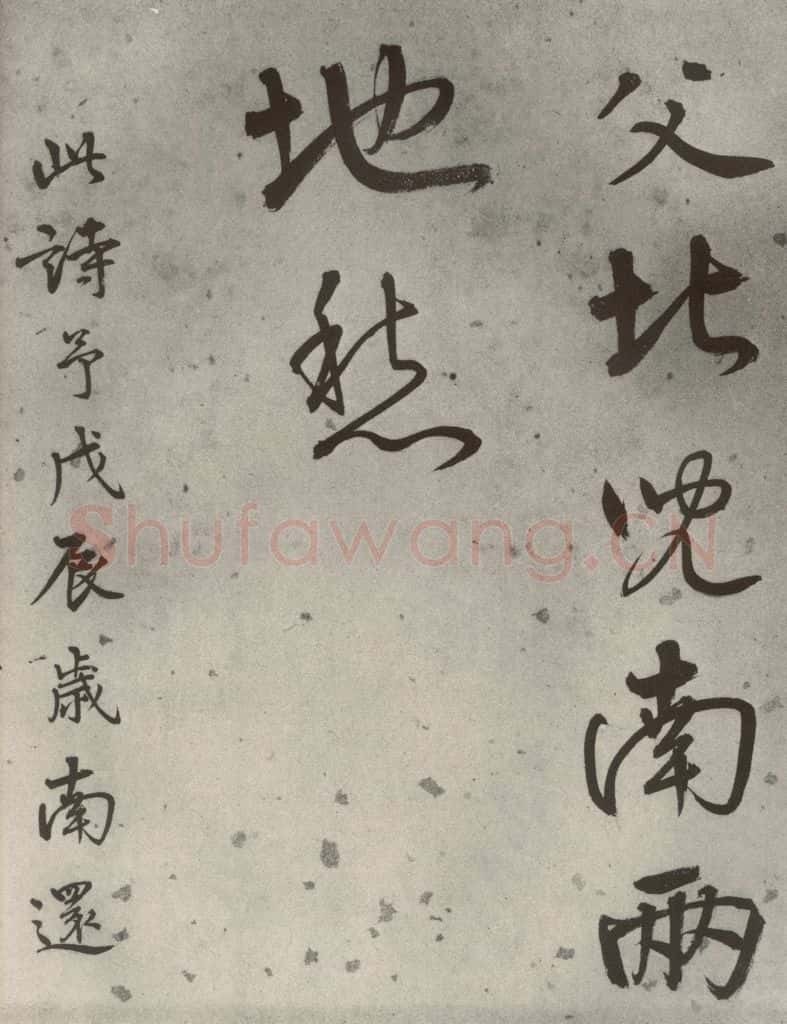 父北兒南兩
地愁
此詩予戊辰歲南還
Shufawang.CN